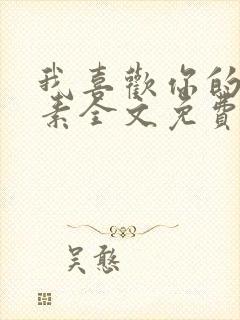 我喜歡你的
素全文免費
吴憨